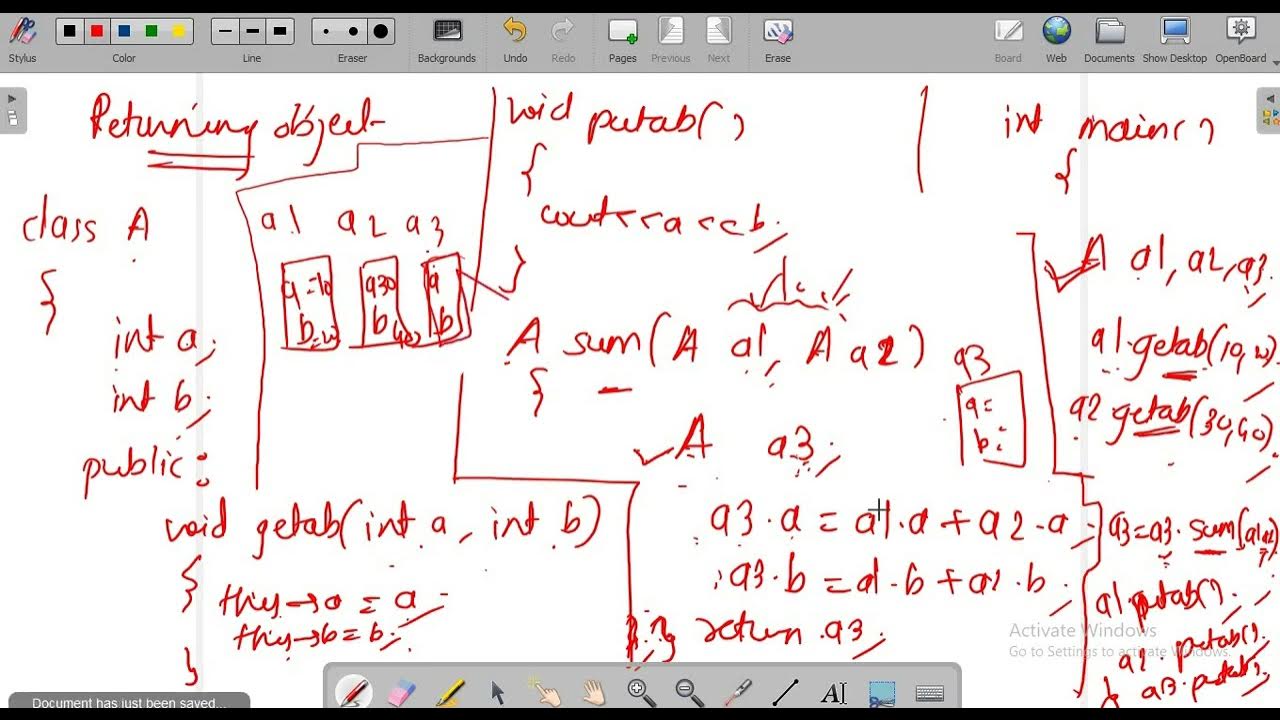 Stylus
Color
Line
Eraser
Backgrounds
Undo
Redo
Pages
Previous
Next
Erase
Board
Web
Documents
Show Desktop
OpenBoard
Returning object
class A
{
int a;
int b;
public:
void getab(int a, int b)
{
this→a = a
this→b = b;
}
a1 a2 a3
a=10 a30 a
b=20 b40 b
void putab()
{
cout<<a<<b;
}
A sum(A a1, A a2)
{
A a3;
a3
a=
b=
a3.a = a1.a + a2.a
a3.b = a1.b + a2.b
return a3;
int main()
{
A a1, a2, a3
a1.getab(10,20)
a2 getab(30,40)
a3=a3.sum(a1,a2)
a1.putab()
a2.putab()
a3.putab()
}
Activate Windows
Go to Settings to activate Windows.
Document has just been saved...